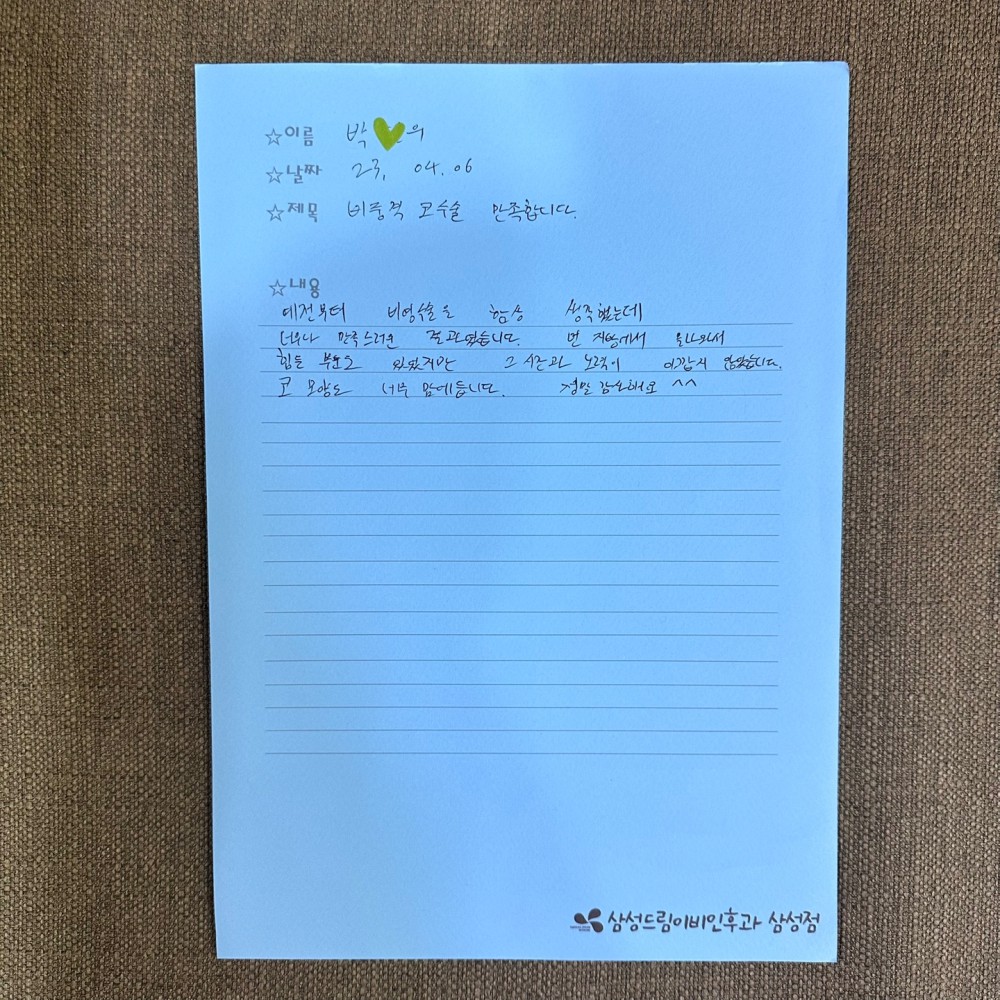 ☆이름 박 우
☆날짜 23. 04. 06
☆제목 비중격 코수술 만족합니다.
☆내용
예전부터 비염수술을 항상 생각했는데
너무나 만족스러운 결과였습니다. 먼 지방에서 올라와서
힘든 부분도 있었지만 그 시간과 노력이 아깝지 않았습니다.
코 모양도 너무 맘에듭니다. 정말 감사해요 ^^
삼성드림이비인후과 삼성점